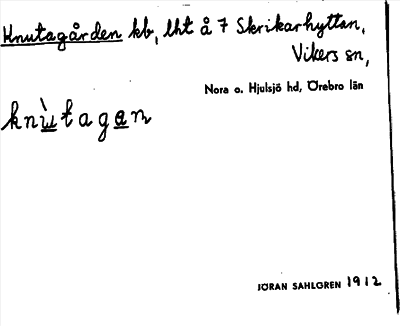 Knutagården kb, lht å 7 Skrikarhyttan,
Vikers sn,
Nora o. Hjulsjö hd, Örebro län
knù̲taga̲n
JÖRAN SAHLGREN 1912